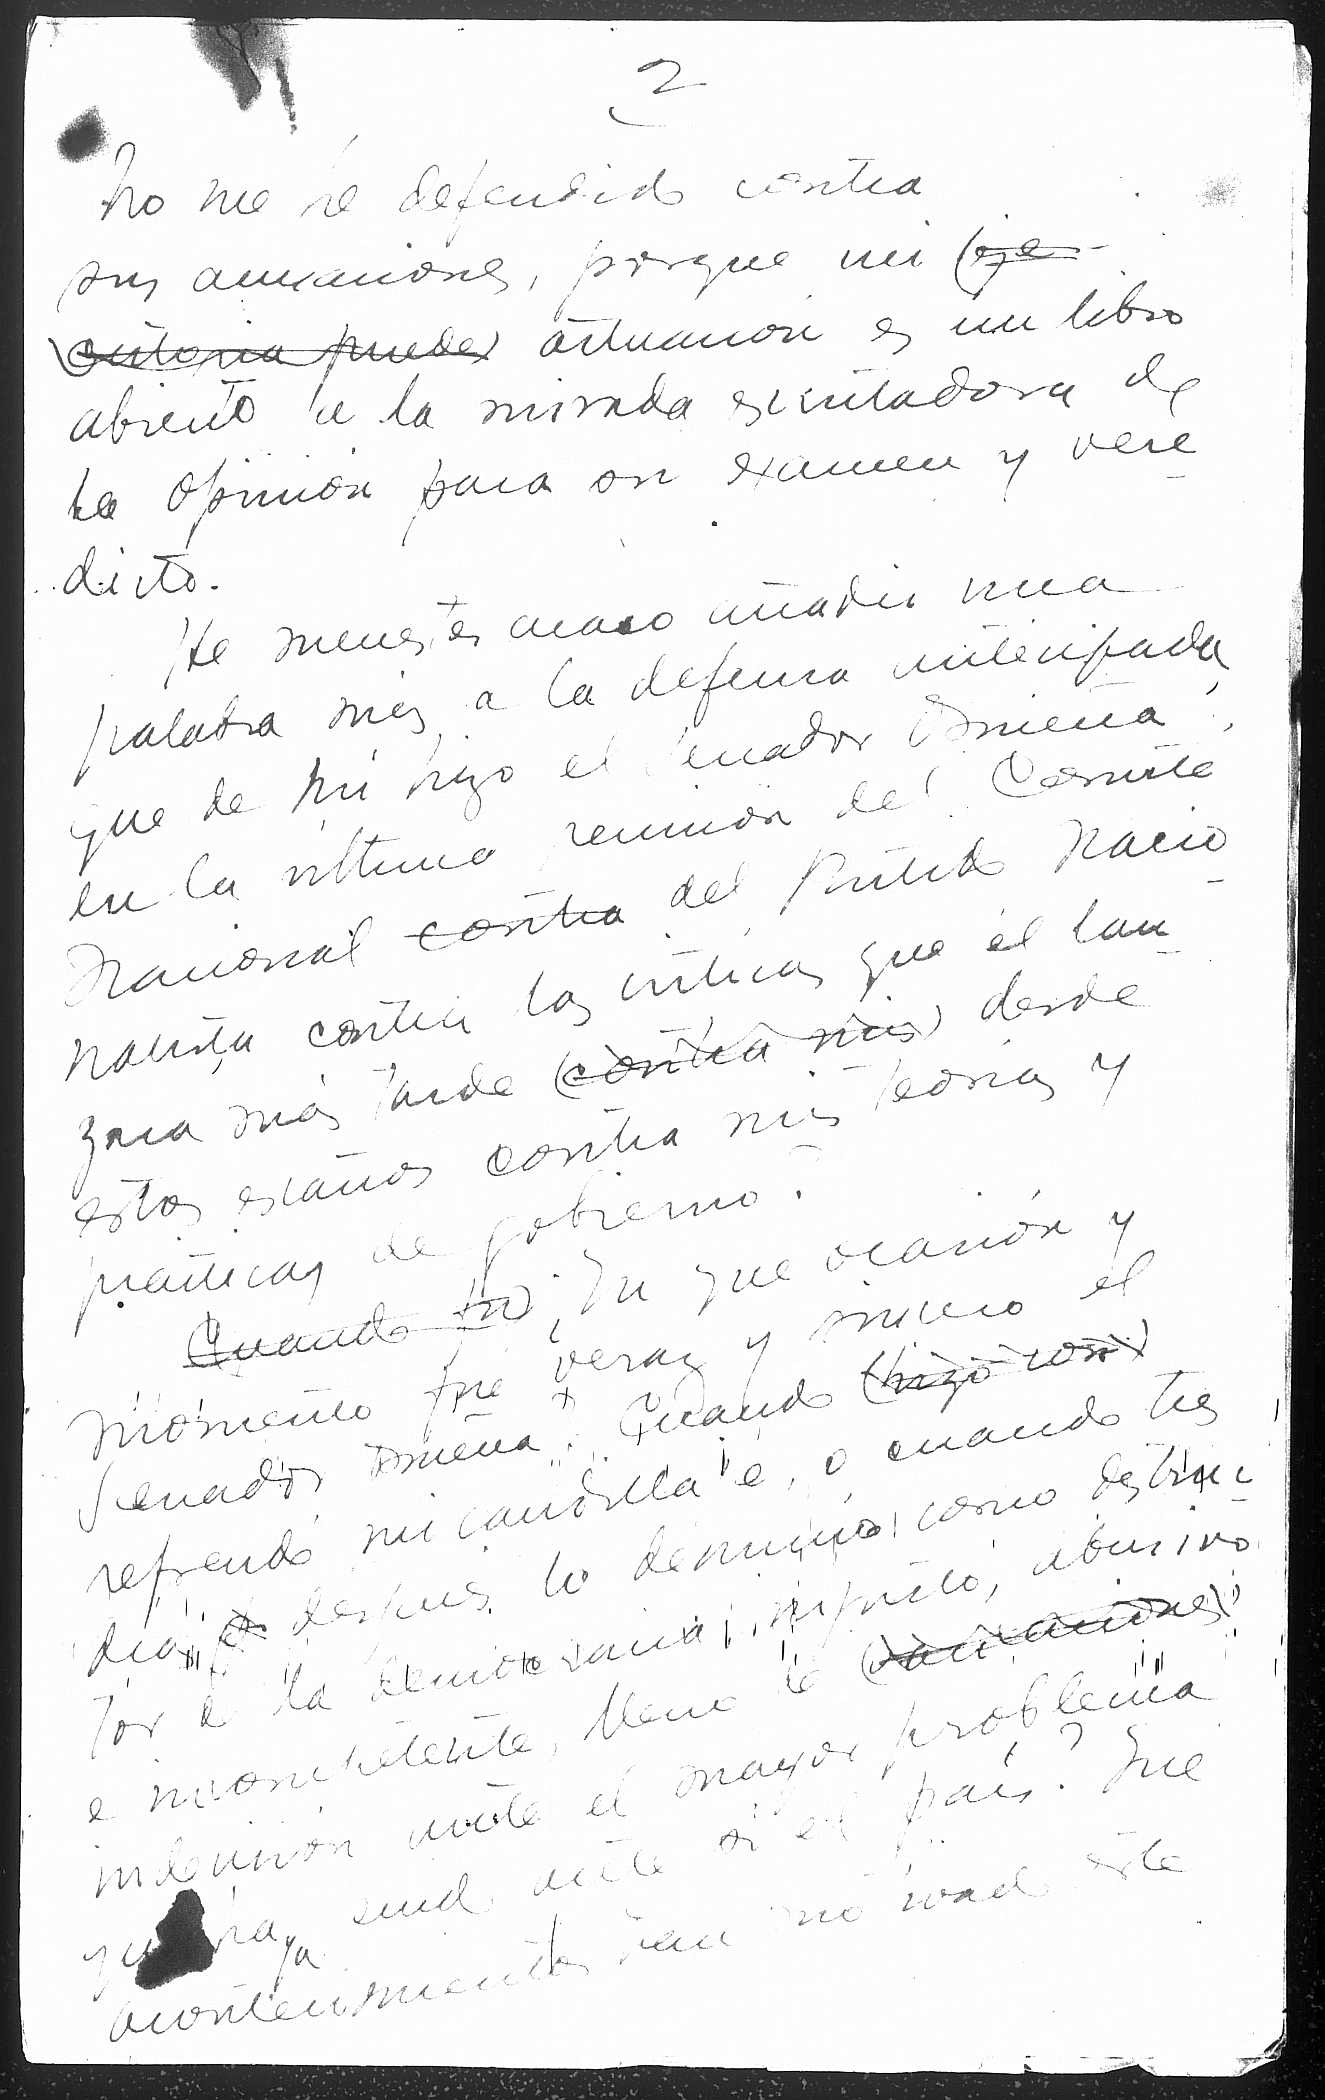 2
No me he defendido contra
sus acusaciones, porque mi (eje-
cutoria puede) actuación es un libro
abierto a la mirada escrutadora de
la opinión para su examen y vere
dicto.
He menester acaso añadir una
palabra más a la defensa anticipada
que de mí hizo el Senador Osmeña
en la última reunión del Comité
Nacional contra del Partido Nacio
nalista contra las críticas que él lan
zara más tarde (contra mis) desde
estos escaños contra mis teorías y
prácticas de gobierno?
Cuando fu) En que ocasión y
momento fué veraz y sincero el
Senador Osmeña? Cuando (hizo con)
refrendó mi candidla e, o cuando tres
dias después lo denunció como destruc
tor de la democracia, injusto, abusivo
e incompetente, lleno de (vacilaciones)
indecisión ante el mayor problema
que haya tenido ante si el país? Que
acontecimientos han motivado este